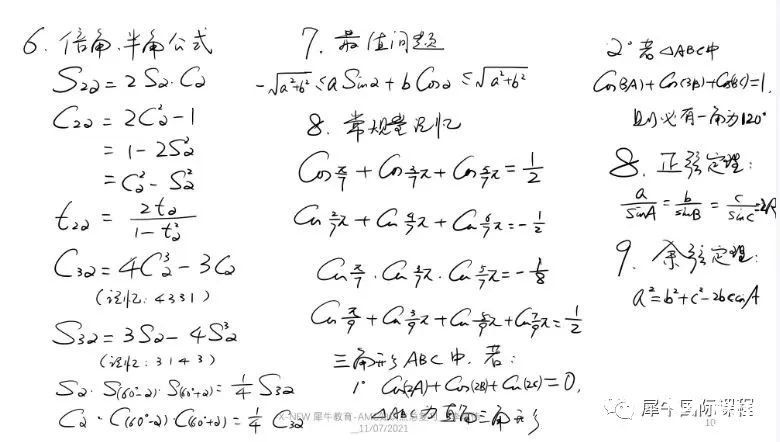 6. 倍角、半角公式
S2α = 2Sα·Cα
C2α = 2Cα² - 1
= 1 - 2Sα²
= Cα² - Sα²
t2α = 2tα / (1 - tα²)
C3α = 4Cα³ - 3Cα
(记忆: 4331)
S3α = 3Sα - 4Sα³
(记忆: 3143)
Sα · S(60°-α) · S(60°+α) = 1/4 S3α
Cα · C(60°-α) C(60°+α) = 1/4 C3α
7. 最值问题
-√(a²+b²) ≤ a Sinα + b Cosα ≤ √(a²+b²)
8. 常规量记忆
Cos π/7 + Cos 3/7 π + Cos 5/7 π = 1/2
Cos 2/7 π + Cos 4/7 π + Cos 6/7 π = -1/2
Cos π/7 · Cos 3/7 π · Cos 5/7 π = -1/8
Cos π/9 + Cos 3/9 π + Cos 5/9 π + Cos 7/9 π = 1/2
三角形 ABC 中, 若:
1° Cos(2A) + Cos(2B) + Cos(2C) = 0,
△ABC 为直角三角形
2° 若 △ABC 中
Cos(3A) + Cos(3B) + Cos(3C) = 1,
则必有一角为120°
8. 正弦定理:
a/sinA = b/sinB = c/sinC = 2R
9. 余弦定理:
a² = b² + c² - 2bc cosA
X-NEW 犀牛教育-AM
11/07/2021
犀牛国际课程
10